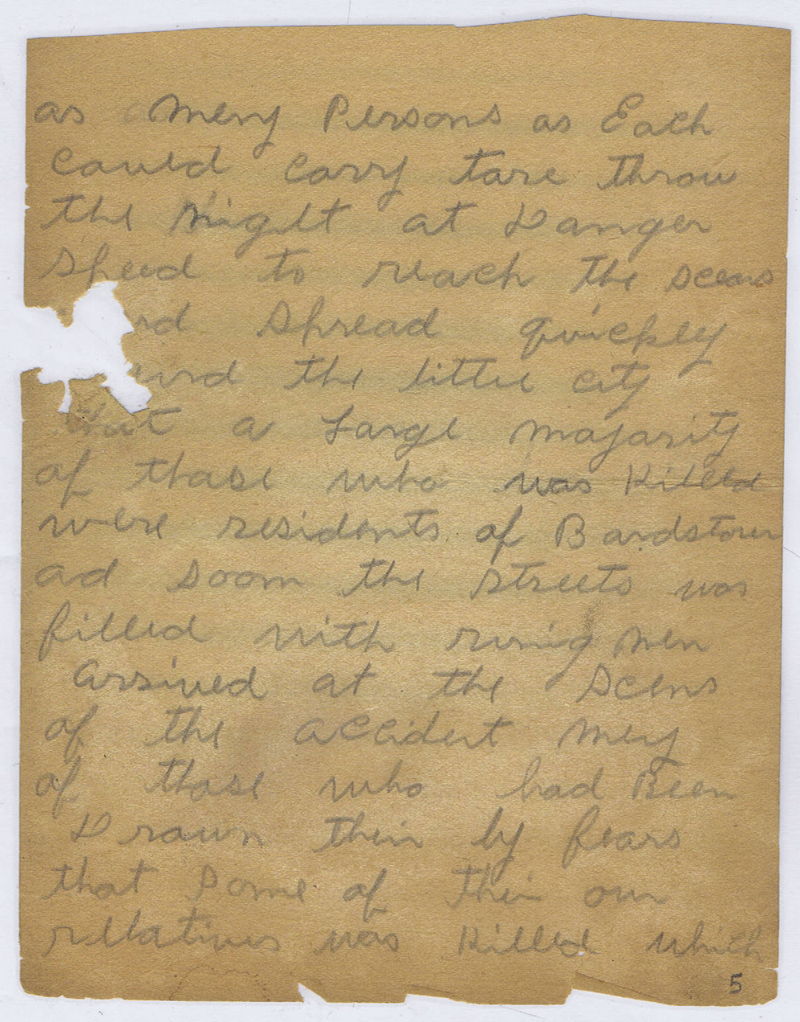 as meny Persons as Each
could carry tare throw
the Night at Danger
Speed to reach the scens
rd Spread quickly
und the little city
but a Large majarity
of thase who was Killed
were residents of Bardstown
ad soom the streets was
filled with runig men
arrived at the scens
of the accident meny
of thase who had Been
Drawn thir by fears
that some of thir own
relatives was Killed which
5